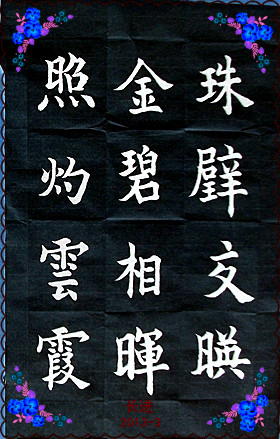 珠璧交暎
金碧相暉
照灼雲霞